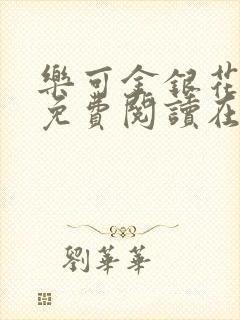 樂可金銀花
免費閱讀在
劉華華